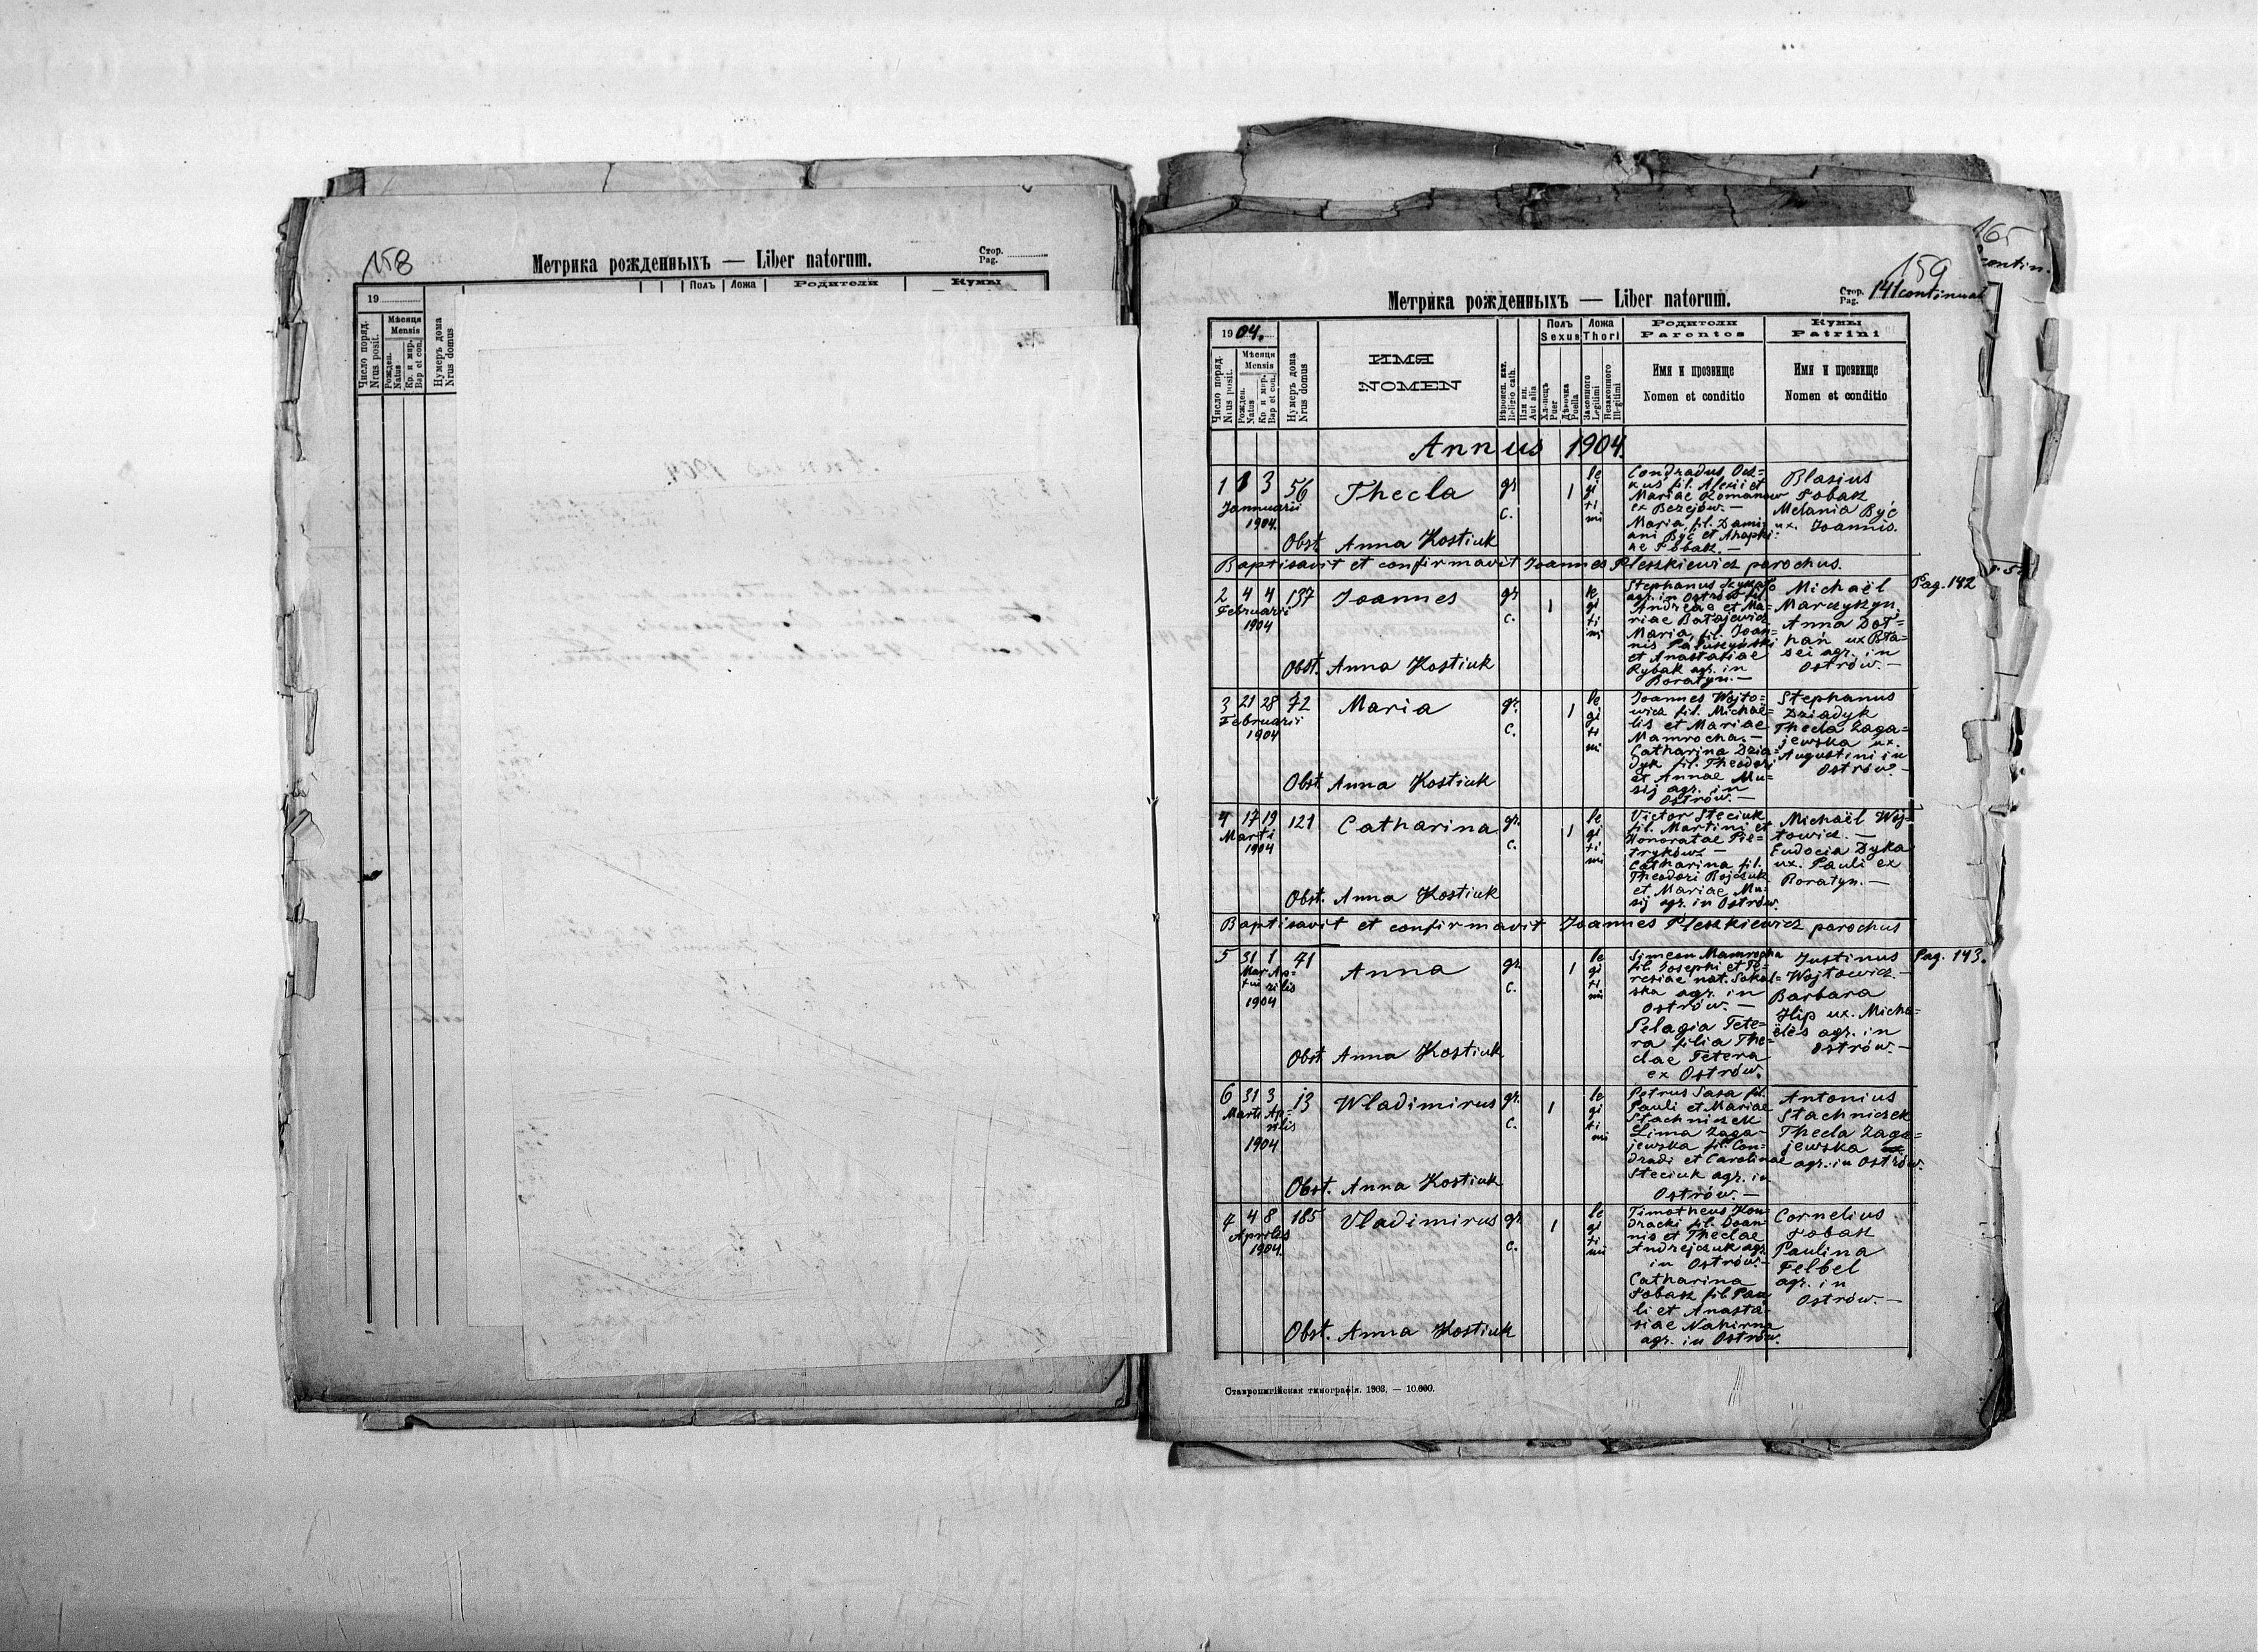 158
Метрика рожденныхъ — Liber natorum.
Стор.
Pag.
19
Число поряд.
Nrus posit.
Мѣсяця
Mensis
Рожден.
Natus
Кр. и мир.
Bap et con.
Нумеръ дома
Nrus domus
Полъ
Ложа
Родители
Кумы
165
contin.
159
Метрика рожденныхъ — Liber natorum.
Стор.
Pag.
141 continuat
1904.
Число поряд.
Nrus posit.
Мѣсяця
Mensis
Рожден.
Natus
Кр и мир.
Bap et con.
Нумеръ дома
Nrus domus
ИМЯ
NOMEN
Вѣроисп. кат.
Religio cath.
Или ин.
Aut alia
Полъ
Sexus
Хлопецъ
Puer
Дѣвочка
Puella
Ложа
Thori
Законного
Legitimi
Незаконного
Illegitimi
Родители
Parentes
Имя и прозвище
Nomen et conditio
Кумы
Patrini
Имя и прозвище
Nomen et conditio
Annus 1904.
1 1 3 56
Jannuarii
1904.
Thecla
gr.
c.
1
le
gi
ti
mi
Condradus
kus fil. Alexii et
Mariae Romanow
ex Bezejów. —
Maria, fil. Dami-
ani Być et Ahapki-
ae Tobasz. —
Blasius
Tobasz
Melania Być
ux. Joannis.
Obst. Anna Kostiuk
Baptisavit et confirmavit Joannes Pleszkiewicz parochus.
2 4 4 137
Februarii
1904
Joannes
gr
c.
1
le
gi
ti
mi
Stephanus
agr. in Ostrów fil.
Andreae et Ma=
riae Batajewicz
Maria, fil. Joan=
nis
et Anastasiae
Rybak agr. in
Boratyn. —
Michaël
Marczyszyn,
Anna Doł=
hań ux Bła=
sei agr. in
Ostrów. —
Pag. 142
Obst. Anna Kostiuk
3 21 28 72
Februarii
1904
Maria
gr.
c.
1
le
gi
ti
mi
Joannes Wojto=
wicz fil. Michaë=
lis et Mariae
Mamrocha. —
Catharina Dzia=
dyk fil. Theodori
et Annae Mu=
sij agr. in
Ostrów. —
Stephanus
Dziadyk
Thecla Zaga=
jewska ux.
Augustini in
Ostrów. —
Obst Anna Kostiuk
4 17 19 121
Marti
1904
Catharina
gr.
c.
1
le
gi
ti
mi
Victor Steciuk
fil. Martini et
Honoratae Pie=
trykow. —
Catharina fil.
Theodori Bojczuk
et Mariae Mu=
sij agr. in Ostrów.
Michaël Woj=
towicz. —
Eudocia Dyka
ux. Pauli ex
Boratyn. —
Obst. Anna Kostiuk
Baptisavit et confirmavit Joannes Pleszkiewicz parochus
5 31 1 41
Mar Ap=
tii rilis
1904
Anna
gr.
c.
1
le
gi
ti
mi
Simeon Mamrocha
fil. Josephi et Te=
resiae nat. Sokal=
ska agr. in
Ostrów. —
Pelagia Tete=
ra filia The=
clae Tetera
ex Ostrów.
Justinus
Wojtowicz. —
Barbara
Hip ux. Micha=
ëlis agr. in
Ostrów. —
Pag. 143.
Obst Anna Kostiuk
6 31 3 13
Marti Ap=
rilis
1904
Wladimirus
gr.
c.
1
le
gi
ti
mi
Petrus Sasa fil.
Pauli et Mariae
Stachniczek
Zaga-
jewska fil. Con=
dradi et Carolinae
Steciuk agr. in
Ostrów. —
Antonius
Stachniczek
Thecla Zaga=
jewska
agr. in Ostrów.
Obst. Anna Kostiuk
7 4 8 185
Aprilis
1904.
Vladimirus
gr
c.
1
le
gi
ti
mi
Timotheus Kon=
dracki fil. Joan=
nis et Theclae
Andrejczuk agr.
in Ostrów. —
Catharina
Tobasz fil. Pau
li et Anasta=
siae Nahirna
agr. in Ostrów.
Cornelius
Tobasz
Paulina
Felbel
agr. in
Ostrów. —
Obst. Anna Kostiuk
Ставропигійская типографія. 1903. — 10.000.